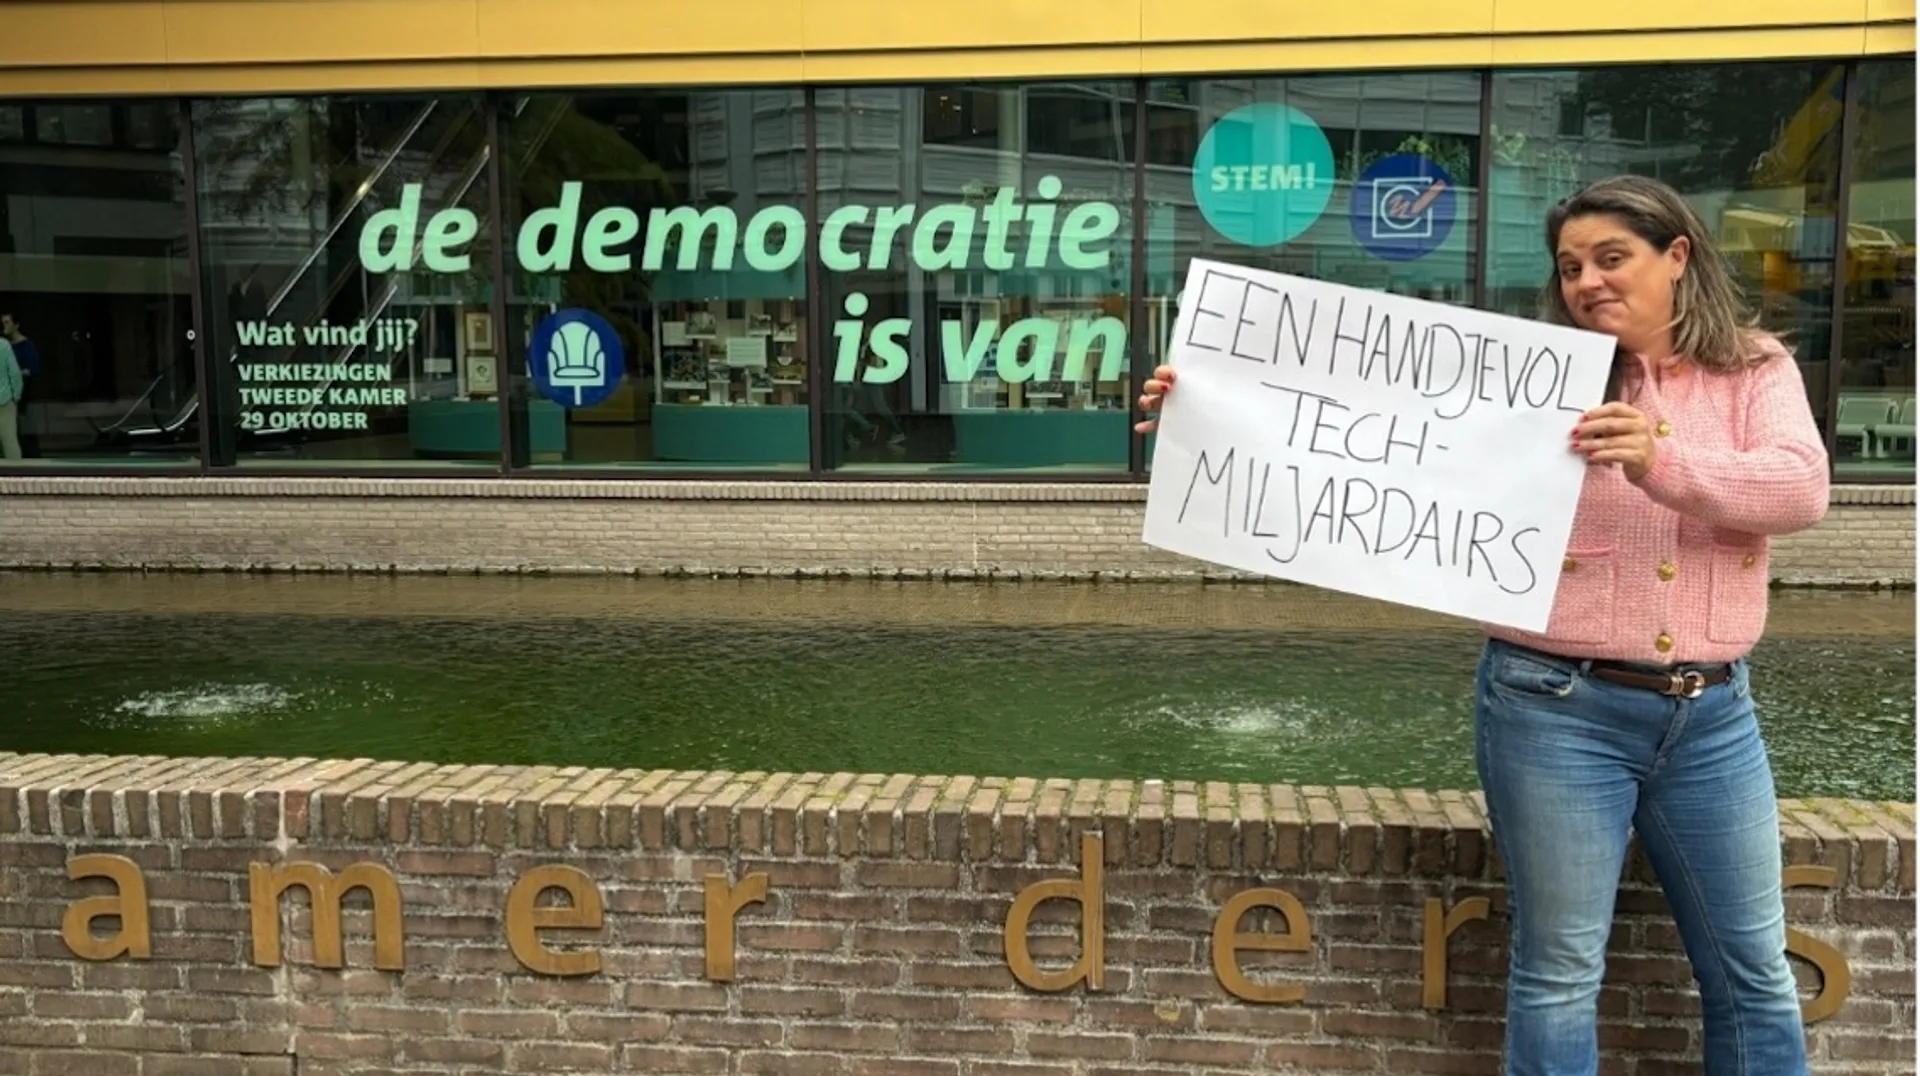 de democratie
is van
STEM!
Wat vind jij?
VERKIEZINGEN
TWEEDE KAMER
29 OKTOBER
EEN HANDJEVOL
TECH-
MILJARDAIRS
amer der s